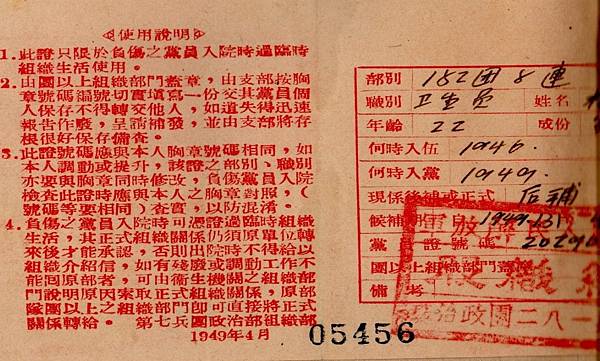 使用說明
1.此證只限於負傷之黨員入院時過臨時
組織生活使用。
2.由團以上組織部門蓋章，由支部按胸
章號碼編號切實填寫一份交其黨員個
人保存不得轉交他人，如遺失得迅速
報告作廢，呈請補發，並由支部將存
根很好保存備查。
3.此證號碼應與本人胸章號碼相同，如
本人調動或提升，該證之部别、職别
亦要與胸章同時修改，負傷黨員入院
檢查此證時應與本人之胸章對照，（
號碼等要相同）查實，以防混淆。
4.負傷之黨員入院時可憑證過臨時組織
生活，其正式組織關係仍須原單位轉
來後才能承認，否則出院時不得給以
組織介紹信，如有殘廢或調動工作不
能囘原部者，可由衛生機關之組織部
門說明原因索取正式組織關係，原部
隊團以上之組織部門即可直接將正式
關係轉給。 第七兵團政治部組織部
1949年4月
05456
部别 182团8連
職别 卫生員 姓名
年齡 22 成份
何時入伍 1946.
何時入黨 1949.
現係後補或正式 后補
候補期 自 1949.
黨員證號碼 2029
團以上組織部門蓋章
備考
放
組織
政治團二八一